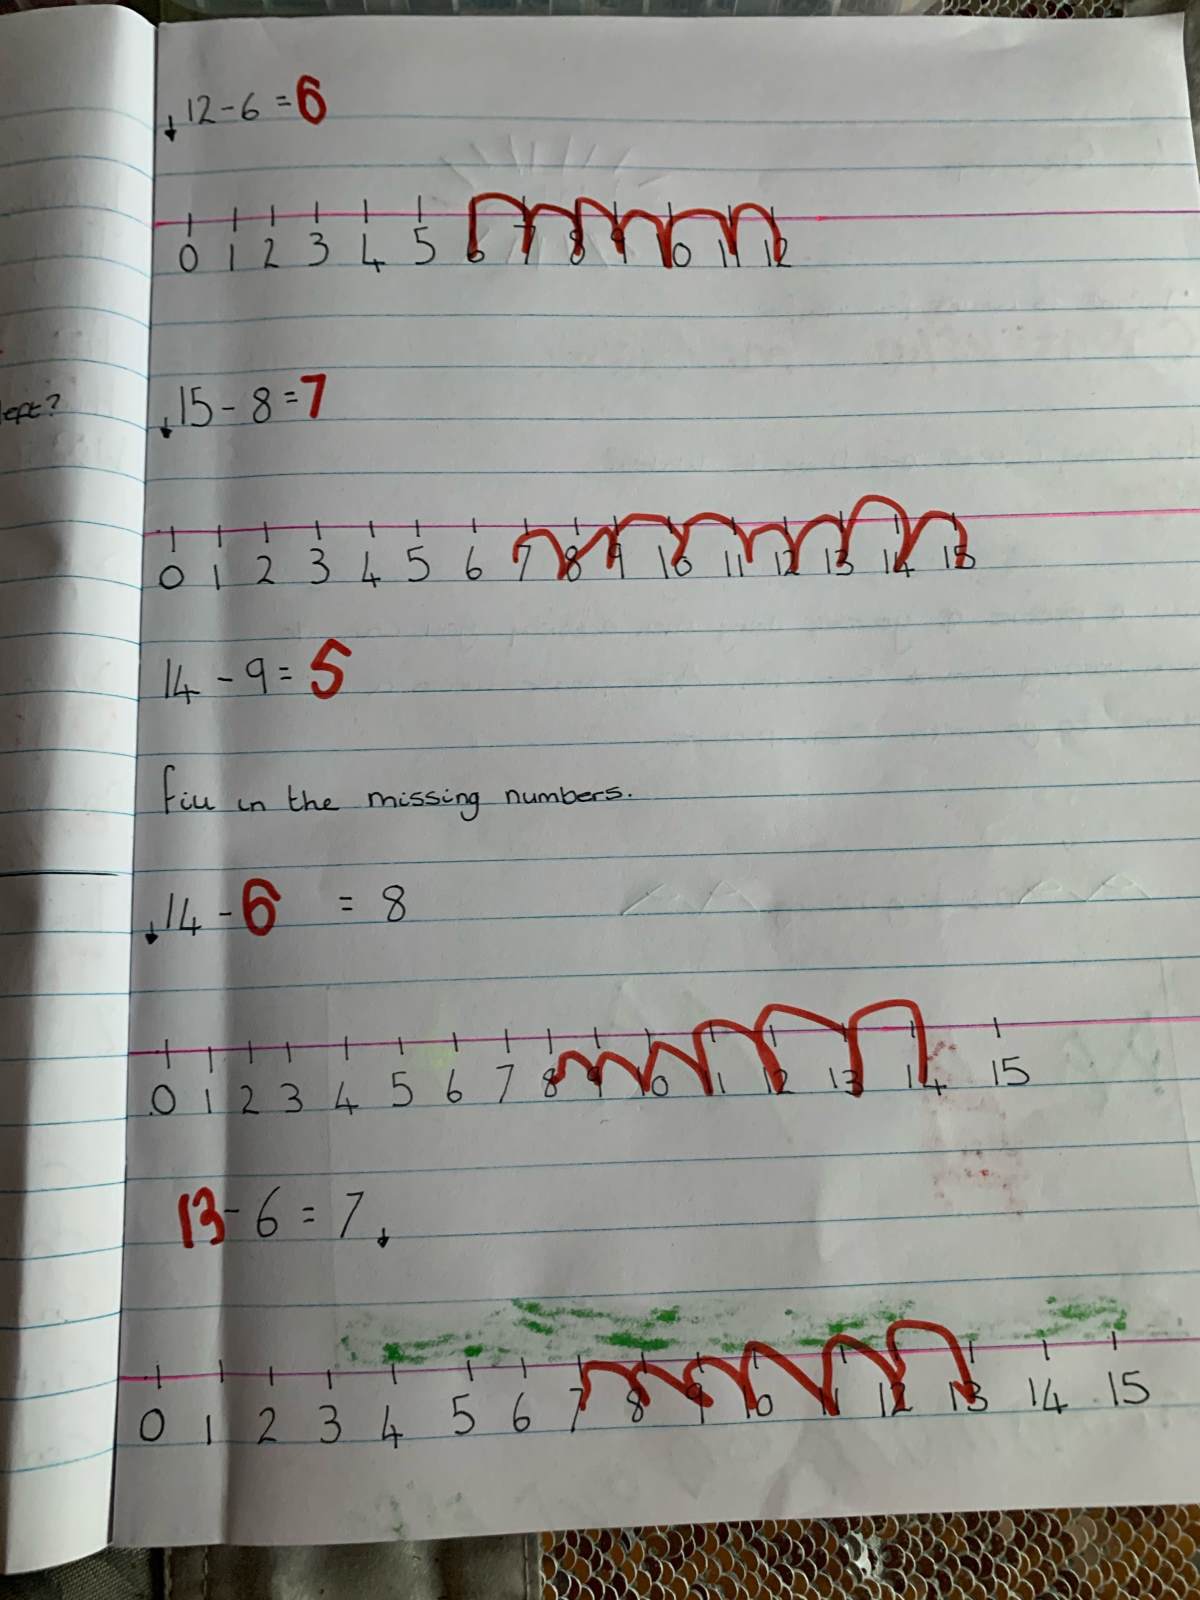 12 - 6 = 6
0 1 2 3 4 5 6 7 8 9 10 11 12
left?
15 - 8 = 7
0 1 2 3 4 5 6 7 8 9 10 11 12 13 14 15
14 - 9 = 5
Fill in the missing numbers.
14 - 6 = 8
0 1 2 3 4 5 6 7 8 9 10 11 12 13 14 15
13 - 6 = 7
0 1 2 3 4 5 6 7 8 9 10 11 12 13 14 15